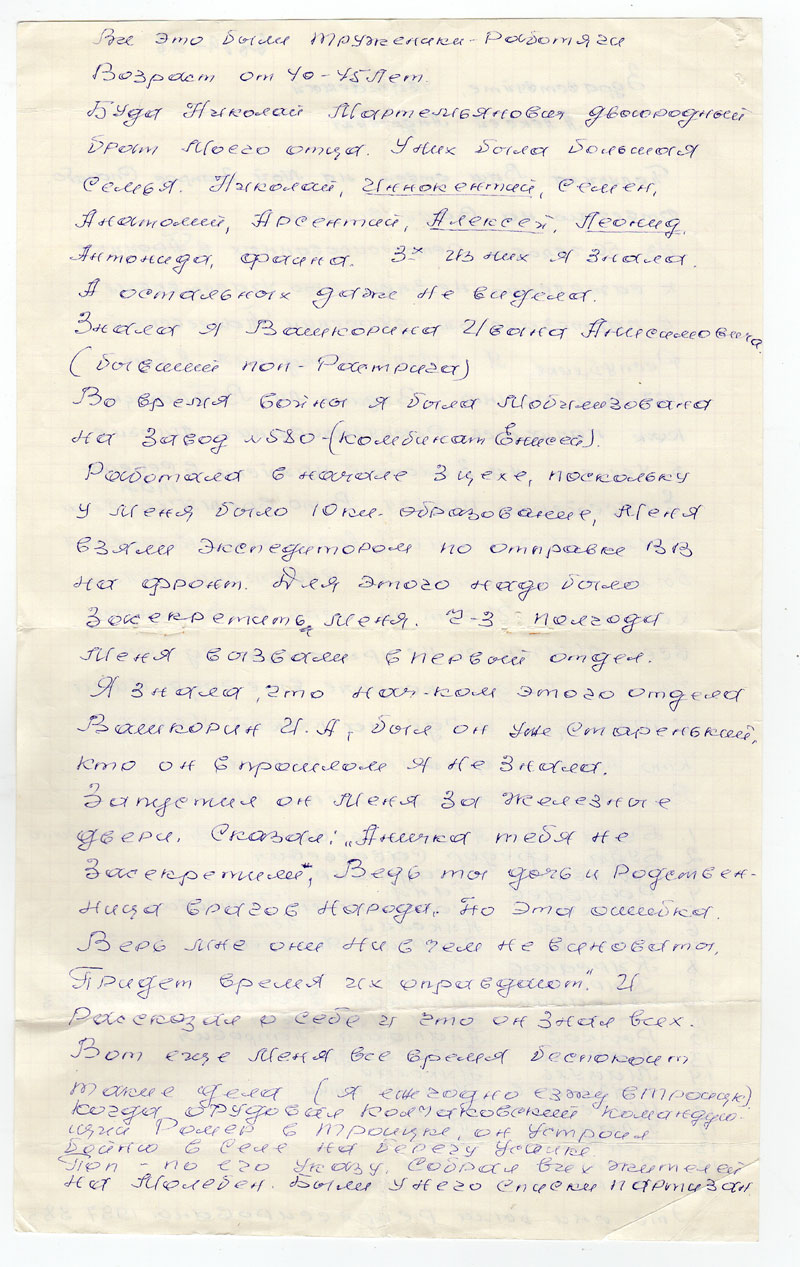 Все это были труженики-Работяги
Возраст от 40-45 Лет.
Буда Николай Мартемьянович двоюродный
брат Моего отца. У них была большая
семья. Николай, Иннокентий, Семен,
Анатолий, Арсентий, Алексей, Леонид,
Антонида, Фаина. 3х из них я знала.
А остальных даже не видела.
Знала я Вашкорина Ивана Анисимовича.
(бывший поп-Растрига)
Во время войны я была Мобилизована
на завод №580-(комбинат Енисей).
Работала в начале 3 цехе, поскольку
у Меня было 10 кл. образование, Меня
взяли экспедитором по отправке ВВ
на фронт. Для этого надо было
Засекретить Меня. Ч-З полгода
Меня вызвали в первый отдел.
Я знала, что нач-ком этого отдела
Вашкорин И.А, был он уже старенький,
кто он в прошлом я не знала.
Запустил он Меня за железные
двери. Сказал: „Аничка тебя не
Засекретили", Ведь ты дочь и Родствен-
ница врагов народа. Но эта ошибка.
Верь мне они ни в чем не виноваты.
Придет время их оправдают." И
Рассказал о себе и что он знал всех.
Вот еще Меня все время беспокоит
такие дела (я ежегодно езжу в Троицк)
когда орудовал колчаковский командую-
щий Ромер в Троицке, он устроил
бойню в селе на берегу Усолке
Поп - по его указу, собрал всех жителей
на Молебен. Были у него списки партизан